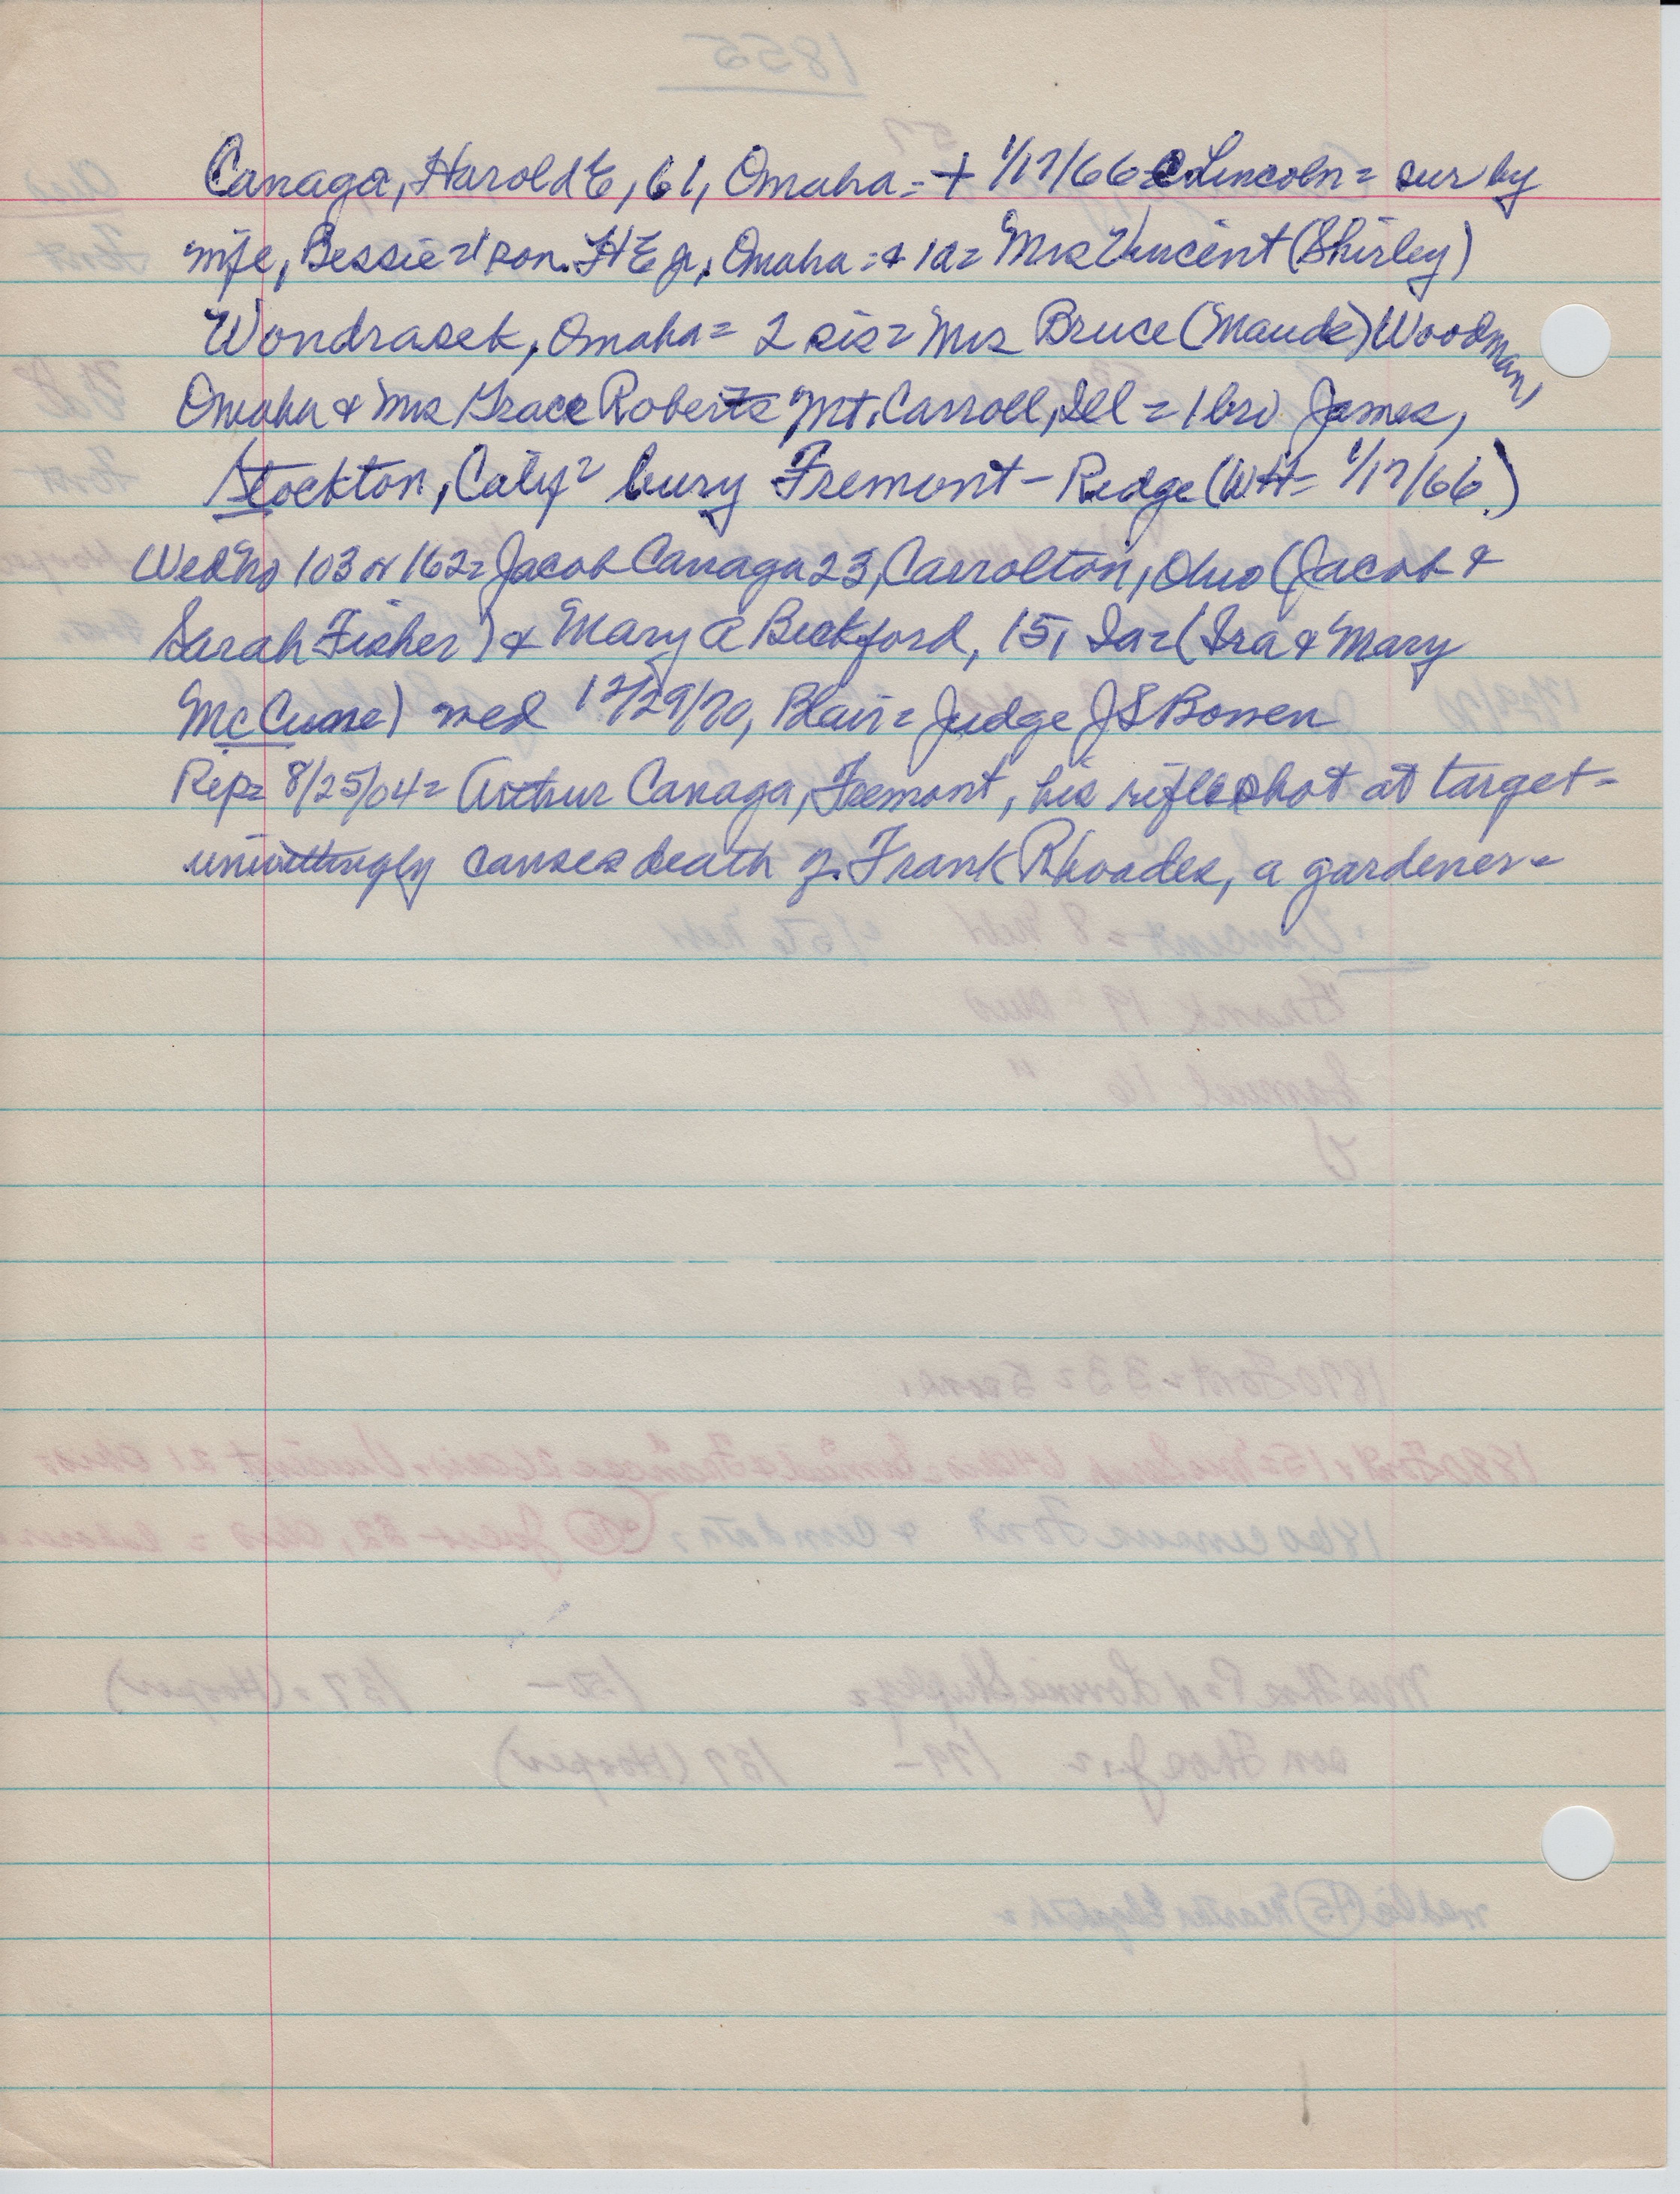 Canaga, Harold E, 61, Omaha = + 1/17/66 @ Lincoln = sur by
wife, Bessie = 1 son. H E jr, Omaha = & 1 d = Mrs Vincent (Shirley)
Wondrasek, Omaha = 2 sis = Mrs Bruce (Maude) Woodman,
Omaha & Mrs Grace Roberts Mt. Carroll, Ill = 1 bro James,
Stockton, Calif = bury Fremont - Ridge (WH = 1/17/66)
103 or 162 = Jacob Canaga 23, Carrolton, Ohio (Jacob &
Sarah Fisher) & Mary A Beckford, 15, Ia = (Ira & Mary
McCune) wed 12/29/70, Blair = Judge J S Bowen
Rep = 8/25/04 = Arthur Canaga, Fremont, his rifle shot at target =
unwittingly causes death of Frank Rhoades, a gardener =